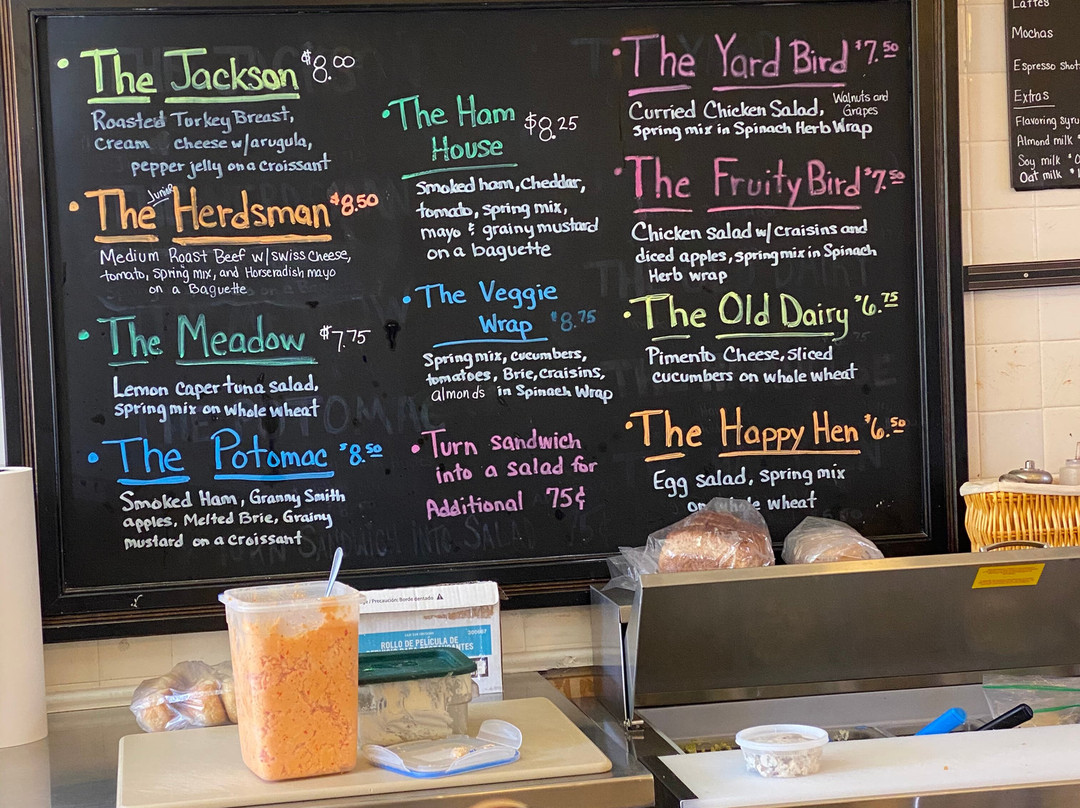 • The Jackson $8.00
Roasted Turkey Breast,
Cream cheese w/arugula,
pepper jelly on a croissant
• The Junior Herdsman $8.50
Medium Roast Beef w/swiss cheese,
tomato, spring mix, and Horseradish mayo
on a Baguette
• The Meadow $7.75
Lemon caper tuna salad,
spring mix on whole wheat
• The Potomac $8.50
Smoked Ham, Granny Smith
apples, Melted Brie, Grainy
mustard on a croissant
• The Ham
House $8.25
Smoked ham, Cheddar,
tomato, spring mix,
mayo & grainy mustard
on a baguette
• The Veggie
Wrap $8.75
Spring mix, cucumbers,
tomatoes, Brie, craisins,
almonds in Spinach Wrap
• Turn sandwich
into a salad for
Additional 75¢
• The Yard Bird $7.50
Curried Chicken Salad, Walnuts and
Grapes
spring mix in Spinach Herb Wrap
• The Fruity Bird $7.50
Chicken salad w/ craisins and
diced apples, spring mix in Spinach
Herb wrap
• The Old Dairy $6.75
Pimento Cheese, sliced
cucumbers on whole wheat
• The Happy Hen $6.50
Egg salad, spring mix
on whole wheat
Lattes
Mochas
Espresso Shot
Extras
Flavoring Syru
Almond milk
Soy milk
Oat milk
/ Precaución: Borde dentado
ROLLO DE PELÍCULA DE